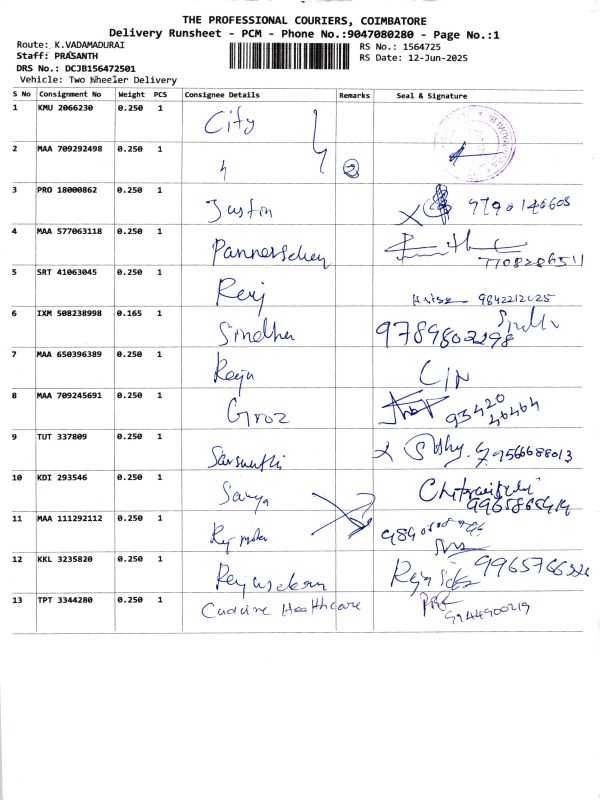 THE PROFESSIONAL COURIERS, COIMBATORE
Delivery Runsheet - PCM - Phone No.:9047080280 - Page No.:1
Route: K.VADAMADURAI
Staff: PRASANTH
DRS No.: DCJB156472501
Vehicle: Two Wheeler Delivery
RS No.: 1564725
RS Date: 12-Jun-2025
S No Consignment No Weight PCS Consignee Details Remarks Seal & Signature
1 KMU 2066230 0.250 1 City
2 MAA 709292498 0.250 1 2
3 PRO 18000862 0.250 1 Justin 9790140605
4 MAA 577063118 0.250 1 7708286511
5 SRT 41063045 0.250 1 9842212025
6 IXM 508238998 0.165 1 Sindhu 9789802298
7 MAA 650396389 0.250 1
8 MAA 709245691 0.250 1 93420 46464
9 TUT 337809 0.250 1 9566688013
10 KDI 293546 0.250 1 Sanya
11 MAA 111292112 0.250 1
12 KKL 3235820 0.250 1
13 TPT 3344280 0.250 1 Healthcare 9944900219